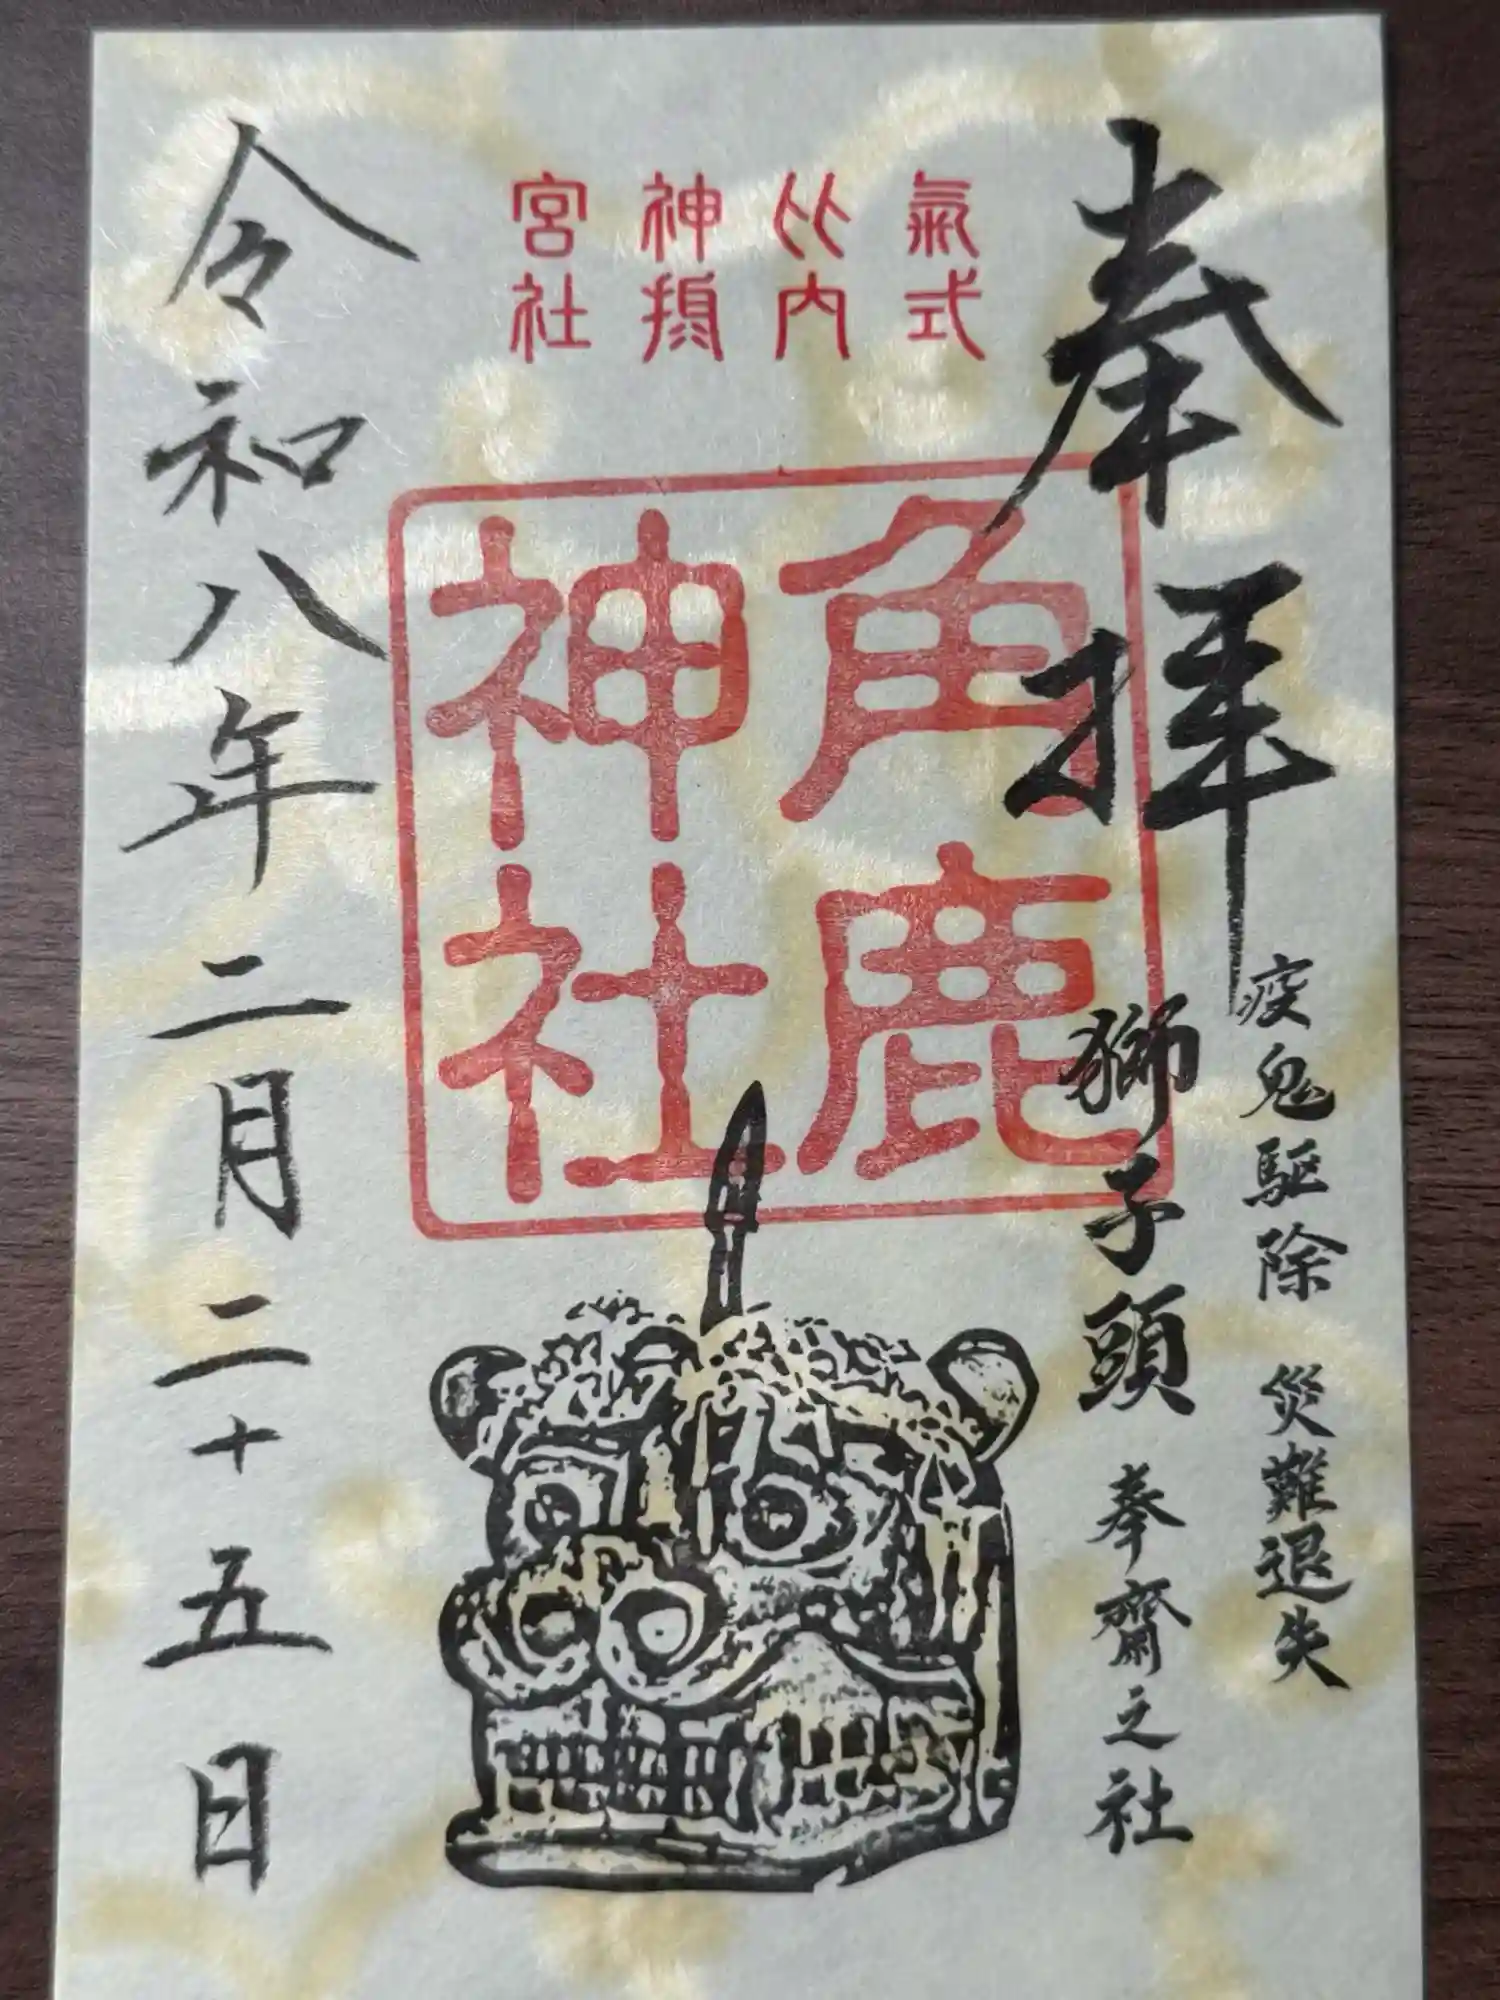 奉拝
疫鬼駆除 災難退失
獅子頭 奉齋之社
氣比神宮
式内摂社
角鹿
神社
令和八年二月二十五日